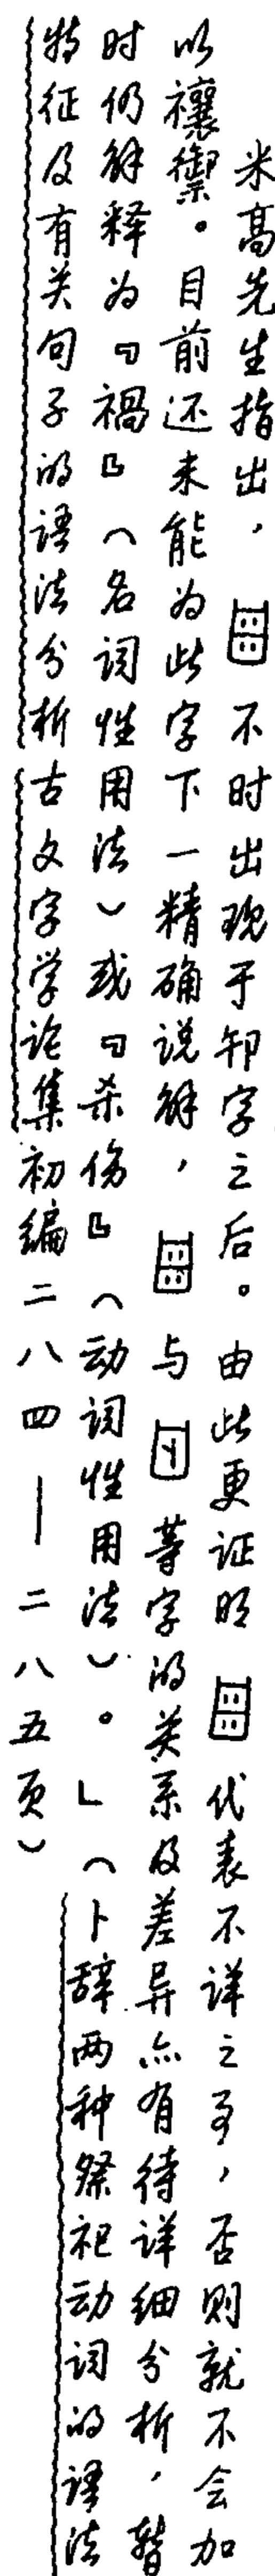 米高先生指出，不时出现于卸字之后。由此更证明代表不详之事，否则就不会加
以禳禦。目前还未能为此字下一精确说解，与等字的关系及差异亦有待详细分析，暂
时仍解释为『禍』（名词性用法）或『杀伤』（动词性用法）。」（卜辞两种祭祀动词的语法
特征及有关句子的语法分析古文字学论集初编二八四—二八五页）